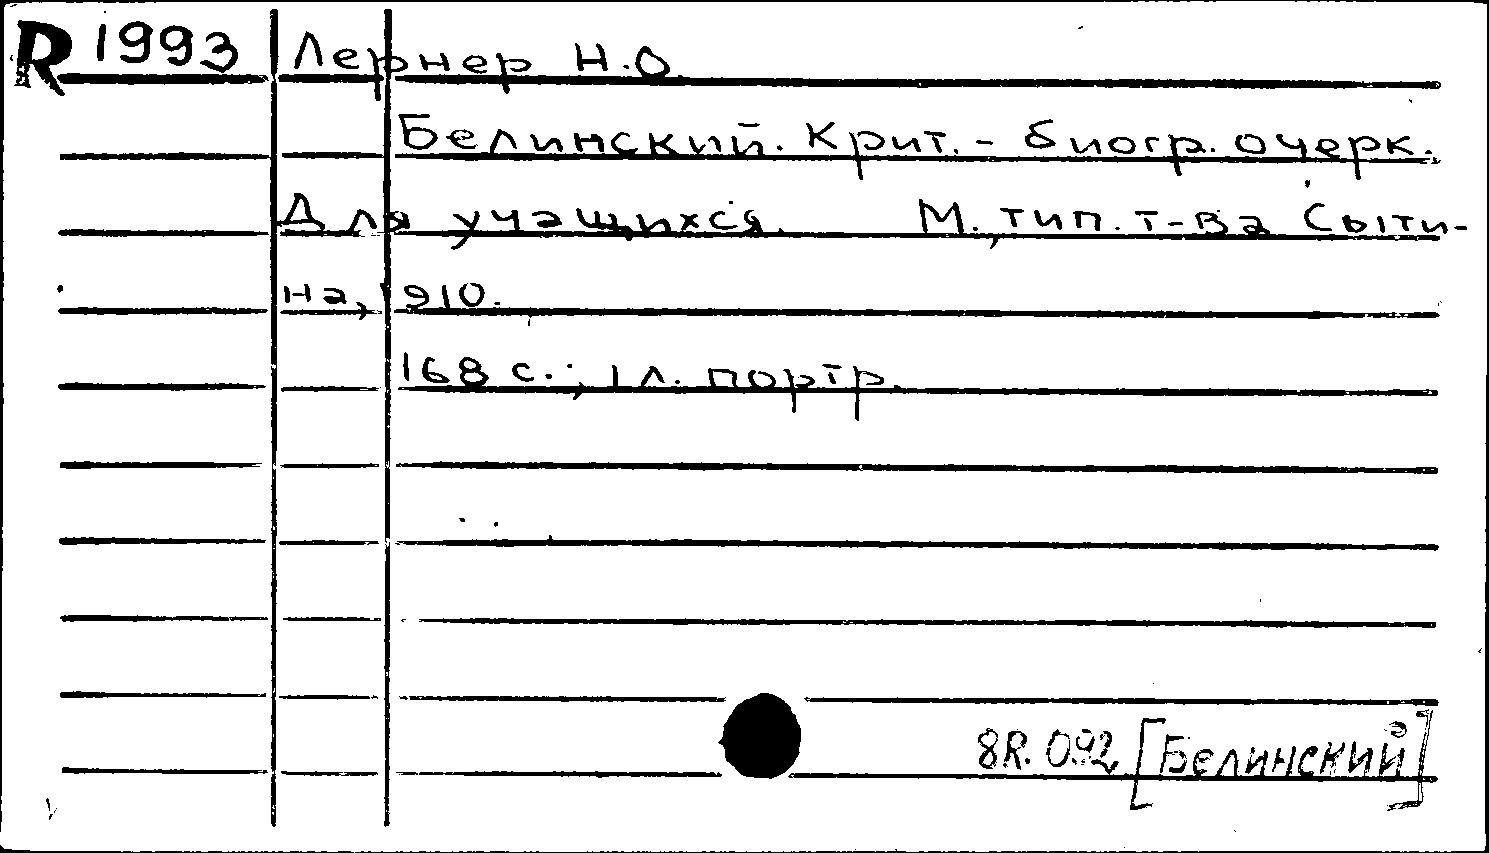 R 1993 Лернер Н.О.
Белинский. Крит.- биогр. очерк.
Для учащихся. М., тип. т-ва Сыти-
на, 1910.
168 с.; 1 л. портр.
8R.092 [Белинский]